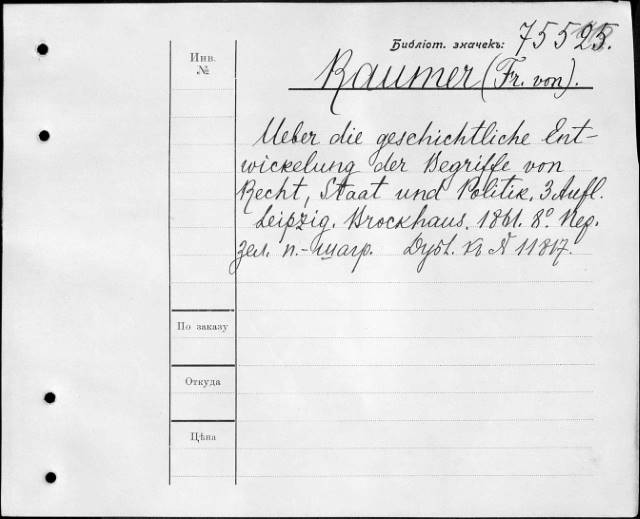 Библіот. значекъ: 75525.
Инв.
№
Raumer (Fr. von).
Ueber die geschichtliche Ent-
wickelung der Begriffe von
Recht, Staat und Politik. 3 Aufl.
Leipzig. Brockhaus. 1861. 8º Пер.
зел. п.-шагр. Дубл. къ № 11817.
По заказу
Откуда
Цѣна